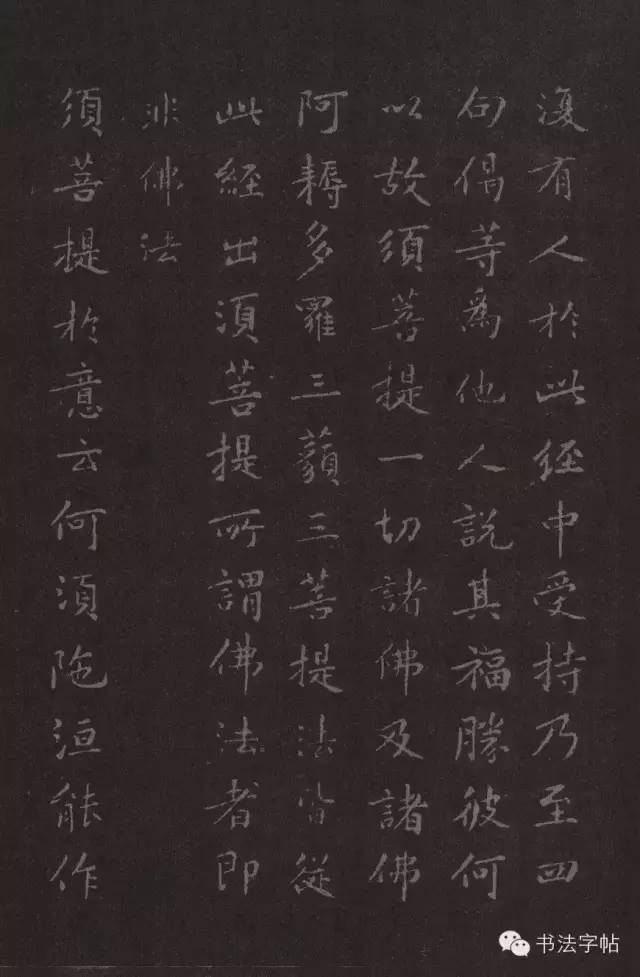 復有人於此経中受持乃至四
句偈等為他人說其福勝彼何
以故須菩提一切諸佛及諸佛
阿耨多羅三藐三菩提法皆從
此經出須菩提所謂佛法者即
非佛法
須菩提於意云何須陁洹能作
书法字帖